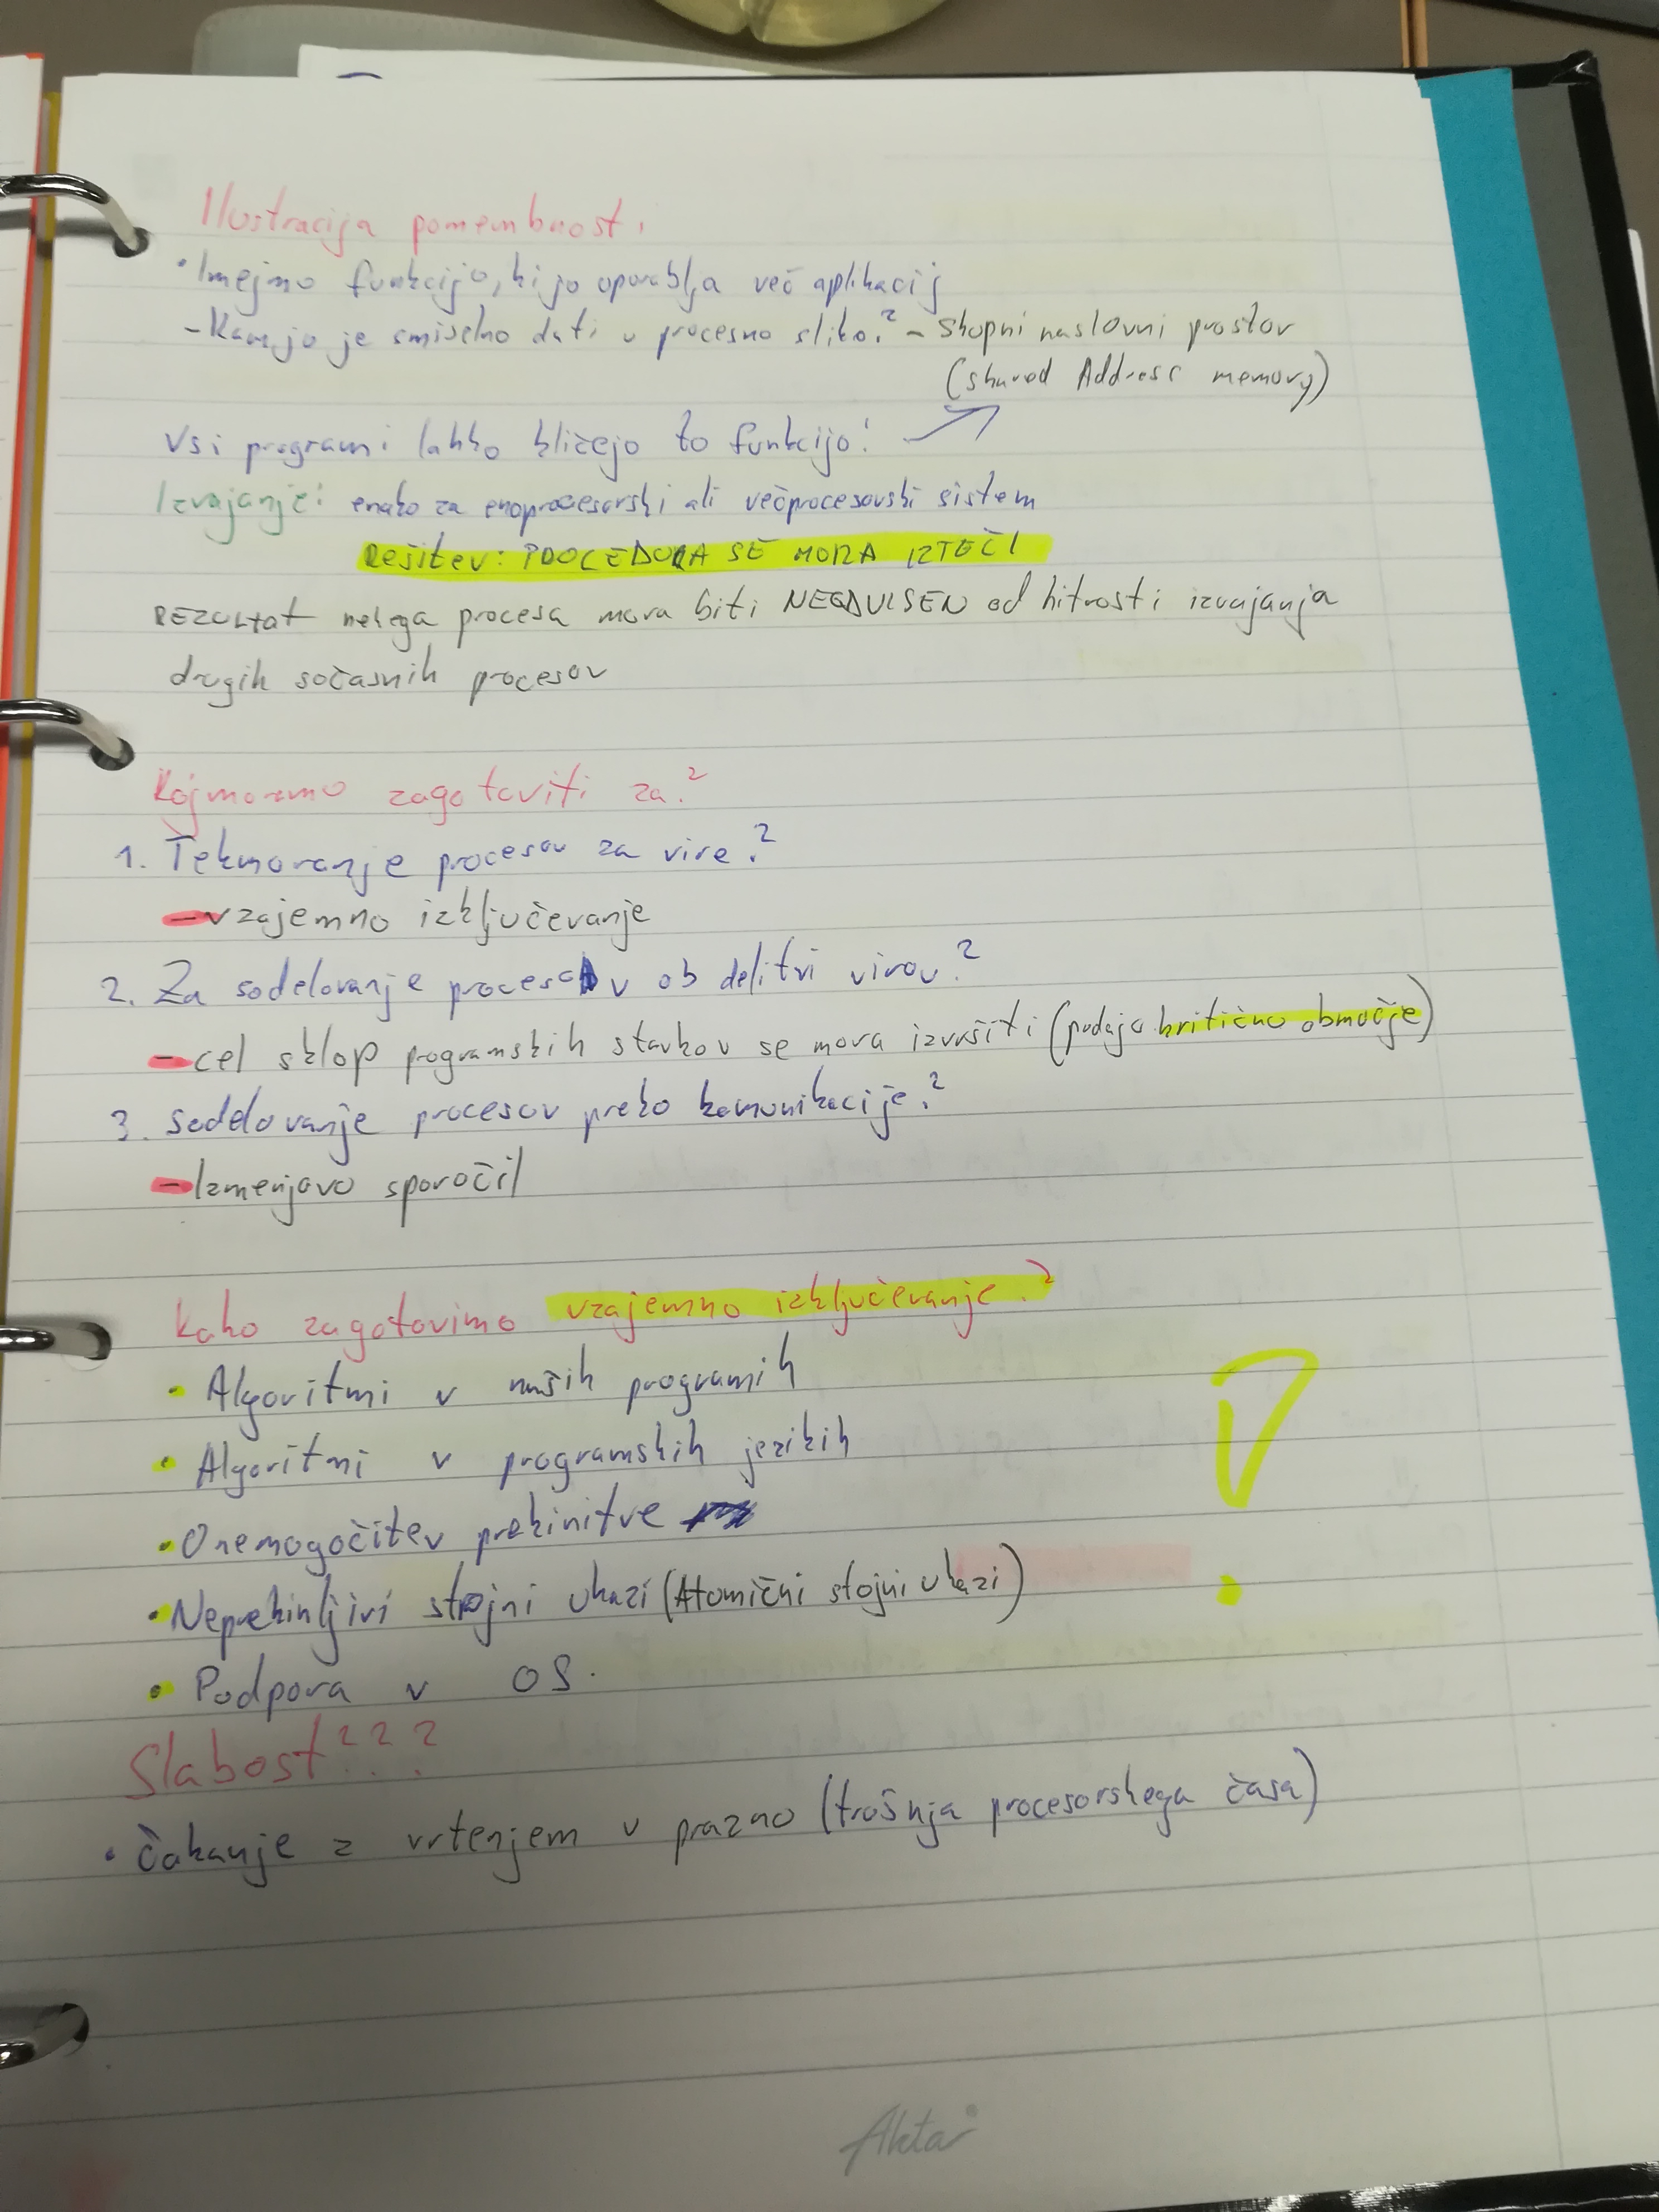 Ilustracija pomembnosti
• Imejmo funkcijo, ki jo uporablja več aplikacij
- Kam jo je smiselno dati v procesno sliko? - Skupni naslovni prostor
(shared Address memory)
Vsi programi lahko kličejo to funkcijo!
Izvajanje: enako za enoprocesorski ali večprocesorski sistem
Rešitev: PROCEDURA SE MORA IZTEČI
REZULTAT nekega procesa mora biti NEODVISEN od hitrosti izvajanja
drugih sočasnih procesov
Kaj moramo zagotoviti za?
1. Tekmovanje procesov za vire?
- vzajemno izključevanje
2. Za sodelovanje procesov ob delitvi virov?
- cel sklop programskih stavkov se mora izvršiti (podaja kritično območje)
3. sodelovanje procesov preko komunikacije?
- Izmenjavo sporočil
Kako zagotovimo vzajemno izključevanje?
• Algoritmi v naših programih
• Algoritmi v programskih jezikih
• Onemogočitev prekinitve
• Neprekinljivi strojni ukazi (Atomični stojni ukazi)
• Podpora v OS.
Slabost???
• Čakanje z vrtenjem v prazno (trošnja procesorskega časa)
Akta